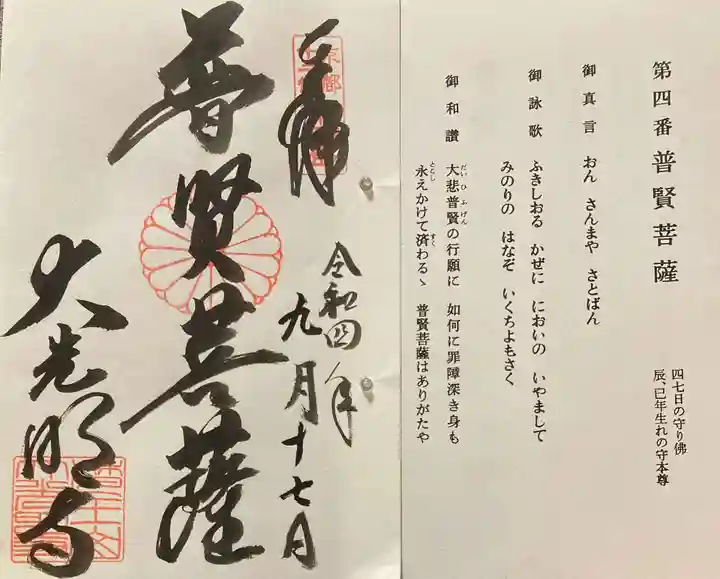 第四番 普賢菩薩
四七日の守り佛
辰、巳年生れの守本尊
御真言 おん さんまや さとばん
御詠歌 ふきしおる かぜに においの いやまして
みのりの はなぞ いくちよもさく
御和讃 大悲普賢の行願に 如何に罪障深き身も
だいひふげん
永えかけて済わるゝ 普賢菩薩はありがたや
とこし すく
奉拝
令和四年
九月十七日
普賢菩薩
大光明寺